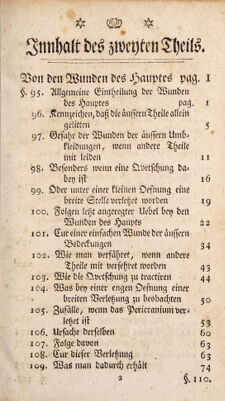 Innhalt des zweyten Theils.
Von den Wunden des Hauptes pag. 1
§. 95. Allgemeine Eintheilung der Wunden
des Hauptes pag. 1
96. Kennzeichen, daß die äussern Theile allein
gelitten 5
97. Gefahr der Wunden der äussern Umb-
kleidungen, wenn andere Theile
mit leiden 11
98. Besonders wenn eine Qvetschung da-
bey ist 16
99. Oder unter einer kleinen Oefnung eine
breite Stelle verletzet worden 19
100. Folgen letzt angeregter Uebel bey den
Wunden des Haupts 22
101. Cur einer einfachen Wunde der äussern
Bedeckungen 34
102. Wie man verfähret, wenn andere
Theile mit versehret worden 43
103. Wie die Qvetschung zu tractiren 44
104. Was bey einer engen Oefnung einer
breiten Verletzung zu beobachten 50
105. Zufälle, wenn das Pericranium ver-
letzet 53
106. Ursache derselben 60
107. Folge davon 63
108. Cur dieser Verletzung 63
109. Was man dadurch erhält 74
2 §. 110.